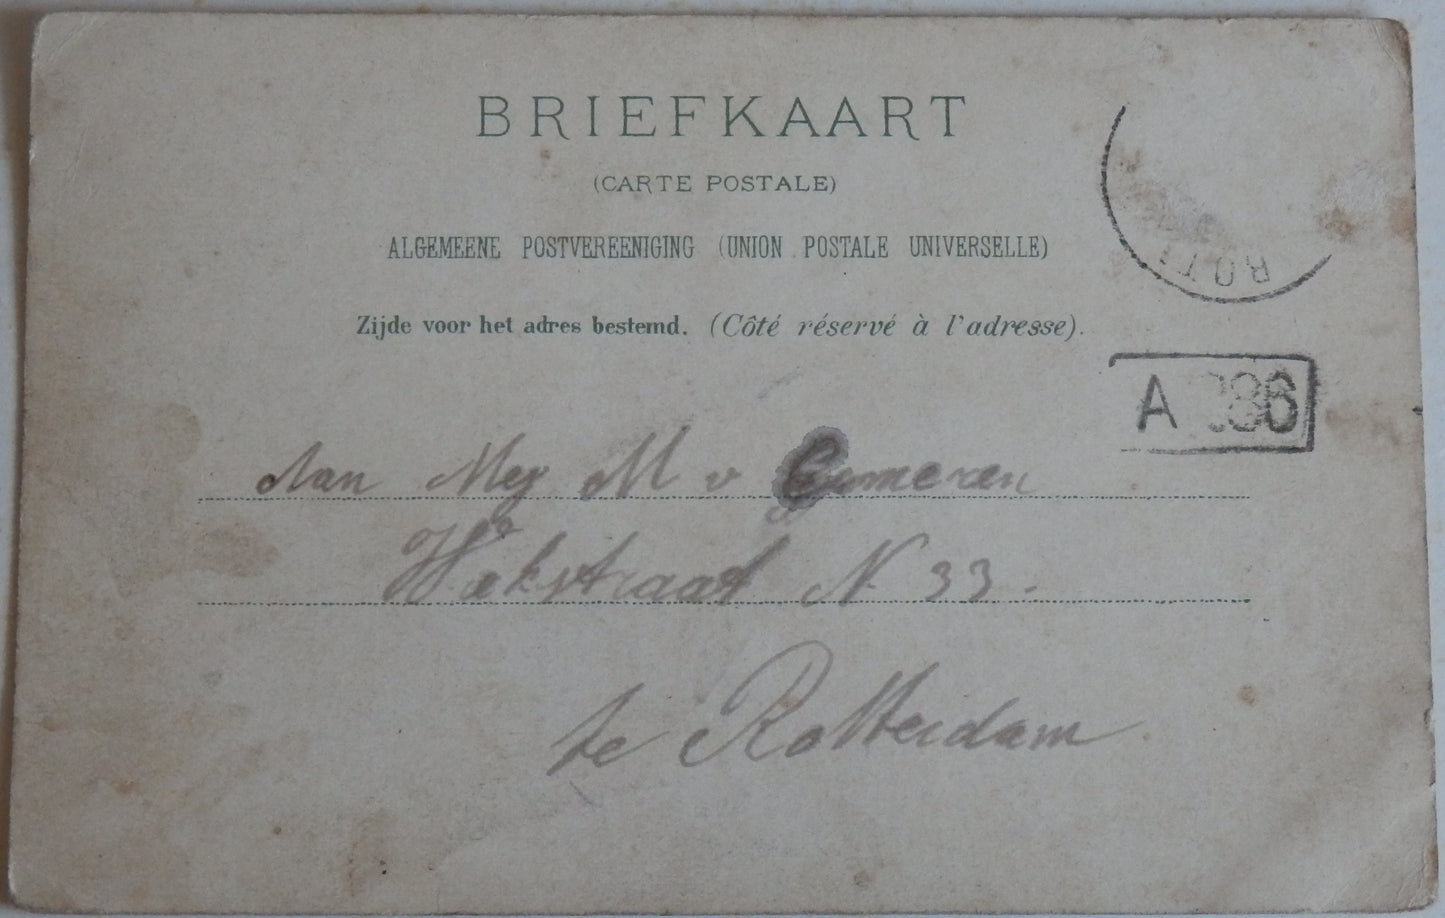 BRIEFKAART
(CARTE POSTALE)
ALGEMEENE POSTVEREENIGING (UNION POSTALE UNIVERSELLE)
Zijde voor het adres bestemd. (Côté réservé à l'adresse).
ROT
A 86
Aan Mej M v
N 33.
te Rotterdam